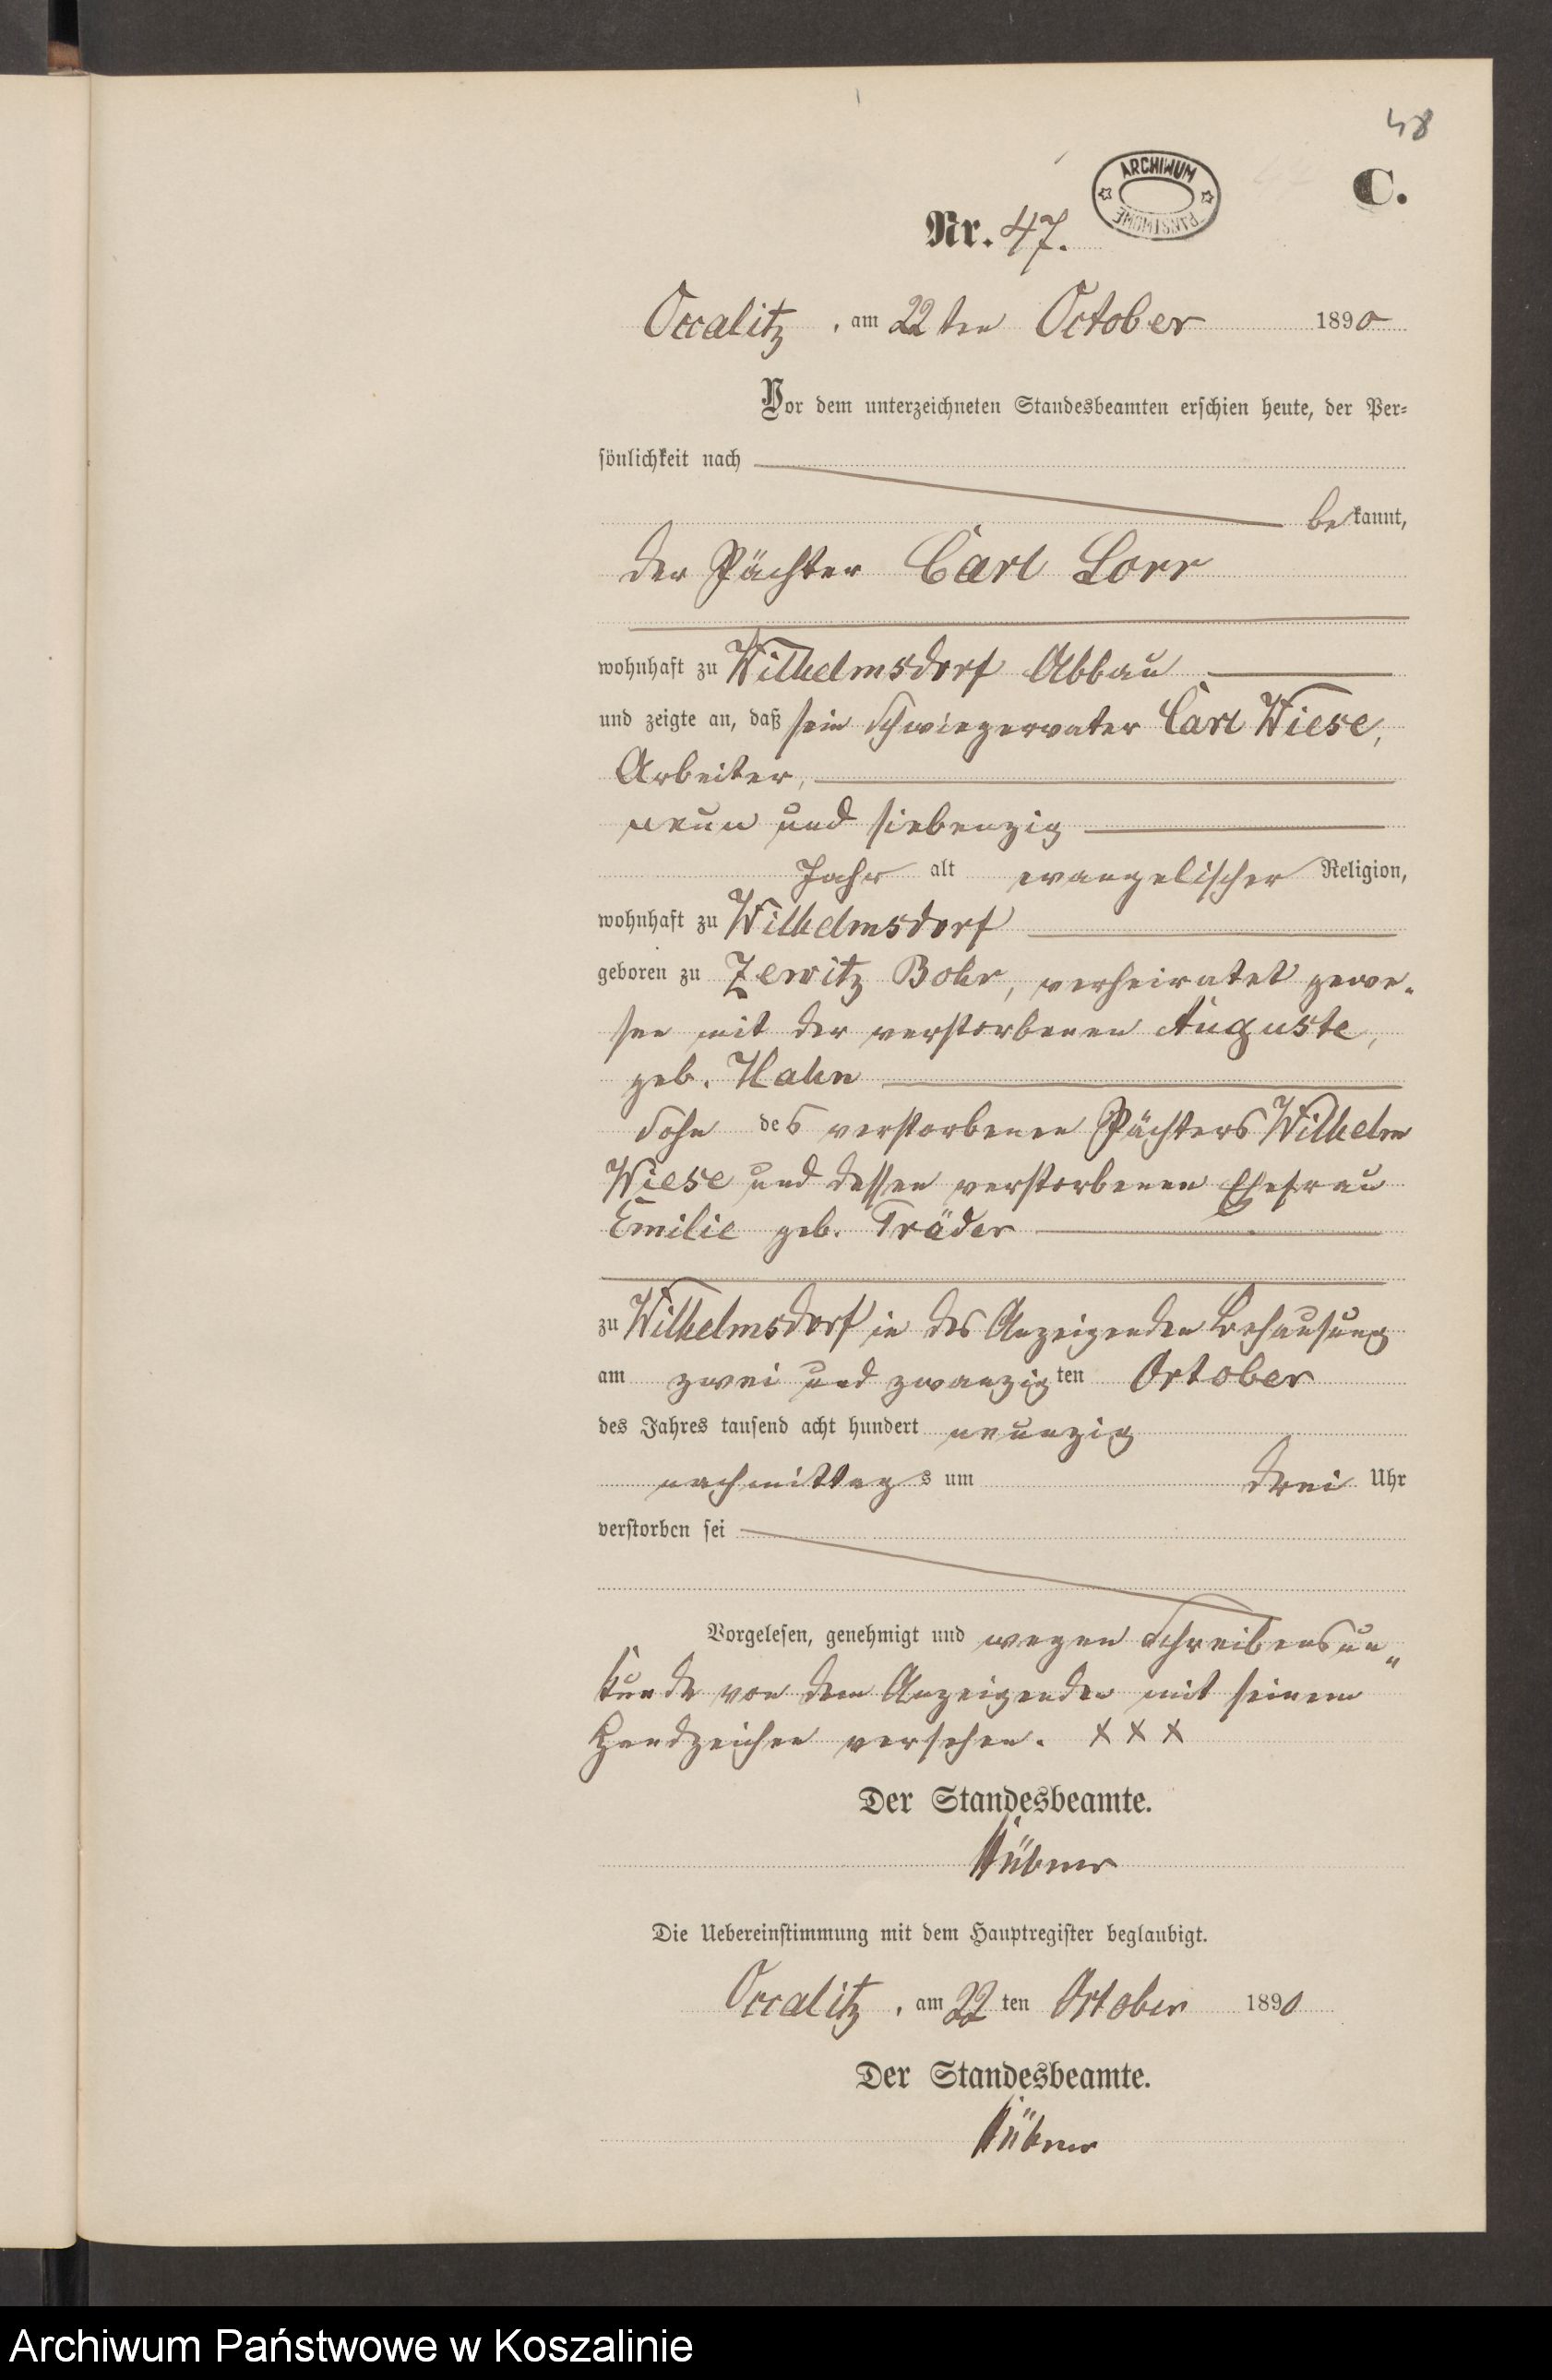 48
ARCHIWUM PAŃSTWOWE
C.
Nr. 47.
Occalitz, am 22ten October 1890
Vor dem unterzeichneten Standesbeamten erschien heute, der Per-
sönlichkeit nach
bekannt,
der Pächter Carl Lorr
wohnhaft zu Wilhelmsdorf Abbau
und zeigte an, daß sein Schwiegervater Carl Wiese,
Arbeiter,
neun und siebenzig
Jahr alt evangelischer Religion,
wohnhaft zu Wilhelmsdorf
geboren zu Zewitz Bohr, verheiratet gewe-
sen mit der verstorbenen Auguste,
geb. Hahn
Sohn des verstorbenen Pächters Wilhelm
Wiese und dessen verstorbenen Ehefrau
Emilie geb. Träder
zu Wilhelmsdorf in des Anzeigenden Behausung
am zwei und zwanzigten October
des Jahres tausend acht hundert neunzig
nachmittags um drei Uhr
verstorben sei
Vorgelesen, genehmigt und wegen Schreibensun„
kunde von dem Anzeigenden mit seinem
Handzeichen versehen. X X X
Der Standesbeamte.
Hübner
Die Uebereinstimmung mit dem Hauptregister beglaubigt.
Occalitz, am 22 ten October 1890
Der Standesbeamte.
Hübner
Archiwum Państwowe w Koszalinie